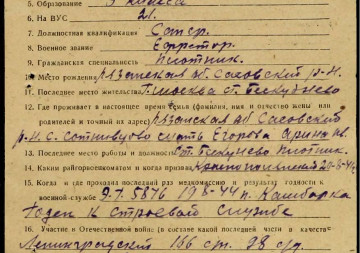 5. Образование 3 класса
6. На ВУС 21.
7. Должностная квалификация Стр.
8. Военное звание Ефрейтор.
9. Гражданская специальность Плотник.
10. Место рождения Рязанская об. Сасовский р-н.
11. Последнее место жительства г. Москва ст. Бескудниково
12. Где проживает в настоящее время семья (фамилия, имя и отчество жены или
родителей и точный их адрес) Рязанская об Сасовский
р-н. с. Сотницыно мать Егорова Арина
13. Последнее место работы и должность Ст. Бескуднево Плотник.
14. Каким райгорвоенкоматом и когда призван
15. Когда и где проходил последний раз медкомиссию и результат годности к
военной службе п. Камбарка
Годен к строевой службе
16. Участие в Отечественной войне (в составе какой последней части и в качестве
Ленинградский 166 с.п. 98 с/д